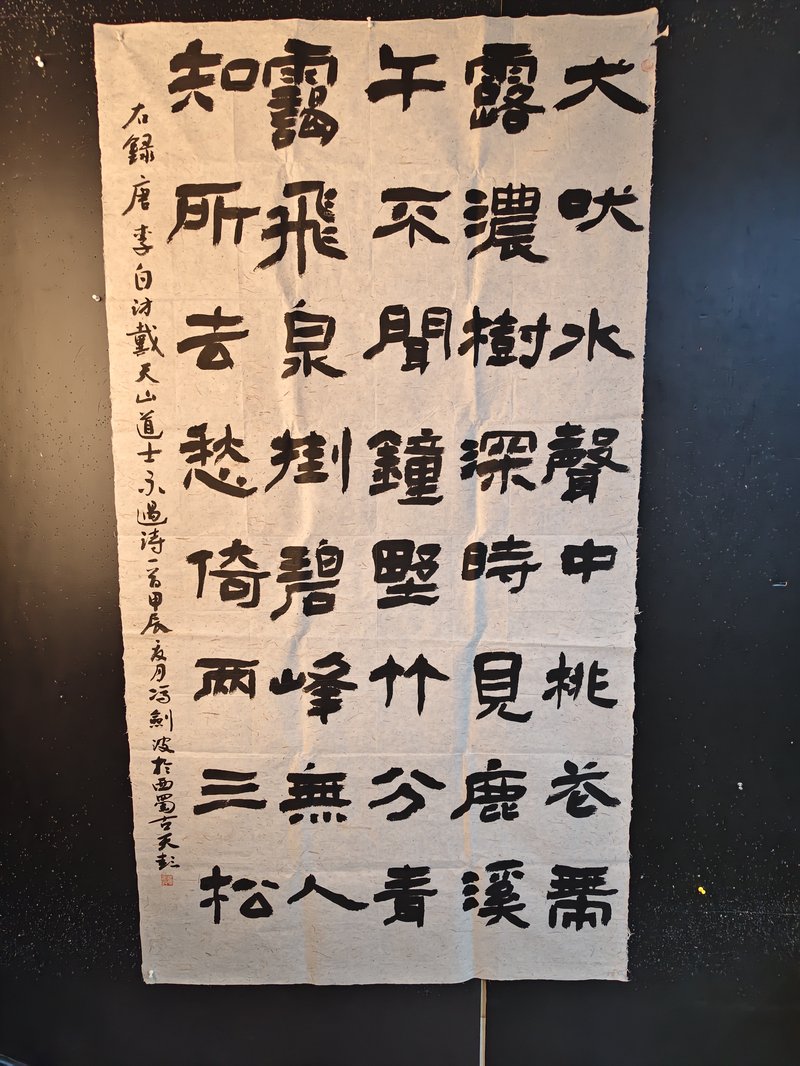 犬吠水聲中桃花帶
露濃樹深時見鹿溪
午不聞鐘野竹分青
靄飛泉挂碧峰無人
知所去愁倚兩三松
右録唐李白访戴天山道士不遇诗一首甲辰夏月冯劍波於西蜀古天彭